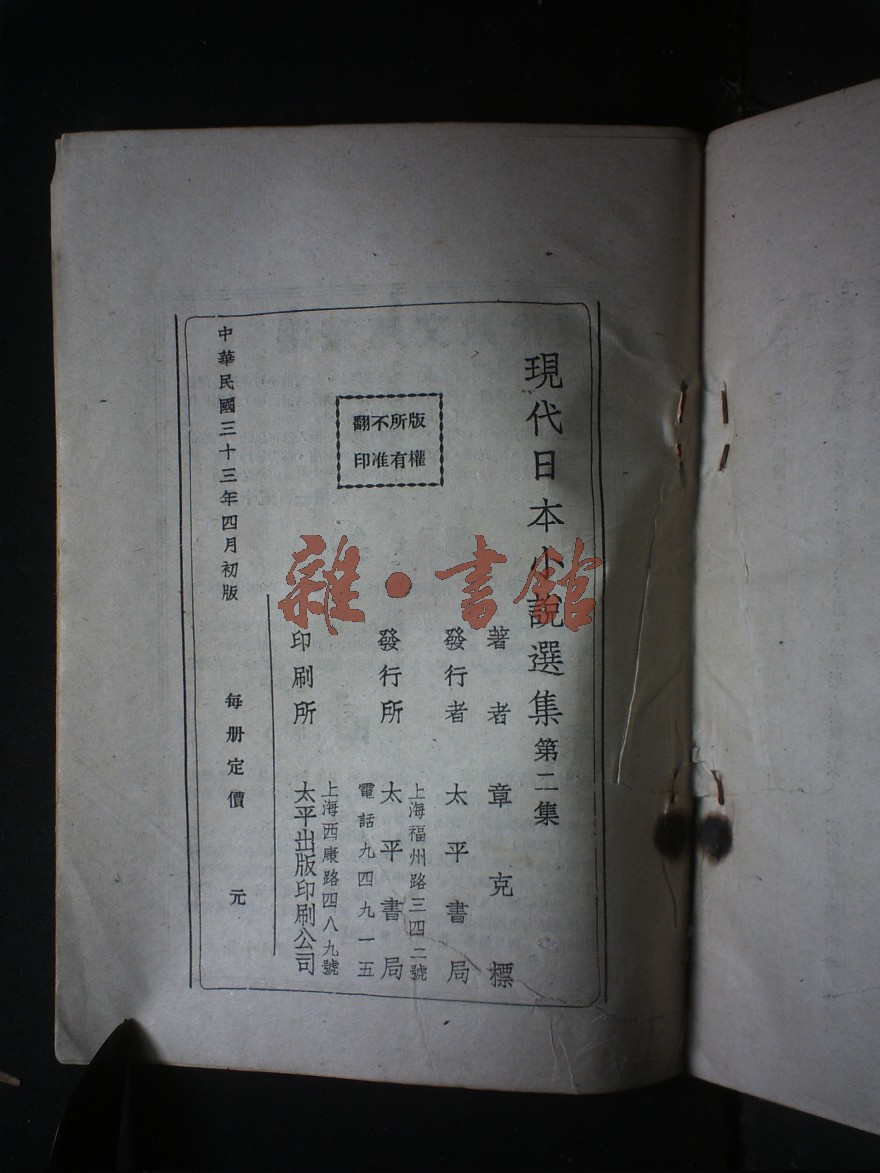 現代日本小說選集 第二集
版權
所有
不准
翻印
著者 章克標
發行者 太平書局
上海福州路三四二號
發行所 太平書局
電話九四九一五
上海西康路四八九號
印刷所 太平出版印刷公司
中華民國三十三年四月初版 每册定價 元
雜·書館